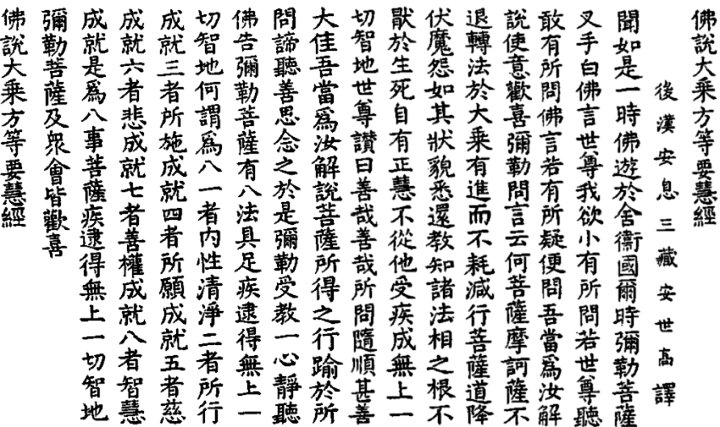 佛說大乘方等要慧經
後漢安息三藏安世高譯
聞如是一時佛遊於舍衞國爾時彌勒菩薩
叉手白佛言世尊我欲小有所問若世尊聽
敢有所問佛言若有所疑便問吾當爲汝解
說使意歡喜彌勒問言云何菩薩摩訶薩不
退轉法於大乘有進而不耗減行菩薩道降
伏魔怨如其狀貌悉還教知諸法相之根不
厭於生死自有正慧不從他受疾成無上一
切智地世尊讚曰善哉善哉所問隨順甚善
大佳吾當爲汝解說菩薩所得之行踰於所
問諦聽善思念之於是彌勒受教一心靜聽
佛告彌勒菩薩有八法具足疾逮得無上一
切智地何謂爲八一者內性清淨二者所行
成就三者所施成就四者所願成就五者慈
成就六者悲成就七者善權成就八者智慧
成就是爲八事菩薩疾逮得無上一切智地
彌勒菩薩及衆會皆歡喜
佛說大乘方等要慧經